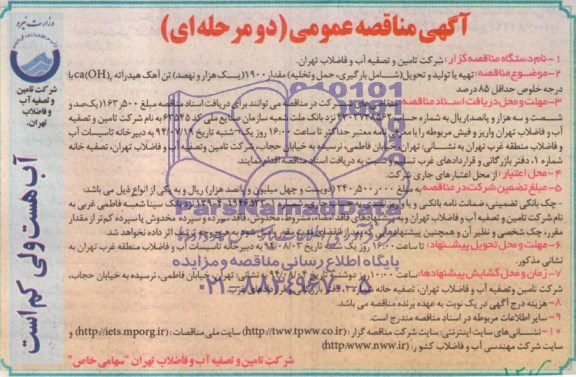 آگهی مناقصه عمومی (دو مرحله‌ای)
وزارت نیرو
شرکت تامین
و تصفیه آب
و فاضلاب
تهران
آب هست ولی کم است
۱- نام دستگاه مناقصه گزار: شرکت تامین و تصفیه آب و فاضلاب تهران.
۲- موضوع مناقصه: تهیه یا تولید و تحویل (شامل بارگیری، حمل و تخلیه) مقدار ۱۹۰۰ (یک هزار و نهصد) تن آهک هیدراته ca(OH)₂ با
درجه خلوص حداقل ۸۵ درصد
۳- مهلت و محل دریافت اسناد مناقصه: شرکت در مناقصه می توانند برای دریافت اسناد مناقصه مبلغ ۱۶۳,۵۰۰ (یکصد و
شصت و سه هزار و پانصد) ریال به شماره نزد بانک ملت شعبه سازمان صنایع ملی کد ۶۳۵۴۵ به نام شرکت تامین و تصفیه
آب و فاضلاب تهران واریز و فیش مربوطه را با معرفی نامه معتبر حداکثر تا ساعت ۱۶:۰۰ روز یک شنبه تاریخ ۹۴/۰۷/۱۹ به دبیرخانه تاسیسات آب
و فاضلاب منطقه غرب تهران به نشانی: تهران، خیابان فاطمی، نرسیده به خیابان حجاب، شرکت تامین و تصفیه آب و فاضلاب تهران، تصفیه خانه
شماره ۱، دفتر بازرگانی و قراردادهای غرب نسبت به دریافت اسناد مناقصه اقدام نمایند.
۴- محل اعتبار: از محل اعتبارهای جاری شرکت.
۵- مبلغ تضمین شرکت در مناقصه: مبلغ ۲۴۰,۵۰۰,۰۰۰ (دویست و چهل میلیون و پانصد هزار) ریال و به یکی از انواع ذیل می باشد:
- چک بانکی تضمینی، ضمانت نامه بانکی و یا سینا شعبه فاطمی غربی به
نام شرکت تامین و تصفیه آب و فاضلاب تهران و به پیشنهادهای فاقد امضاء، مشروط، مخدوش، فاقد سپرده و سپرده مخدوش یا سپرده کمتر از مقدار
مقرر، چک شخصی و نظایر آن و همچنین پیشنهادهایی که بعد از انقضای ترتیب اثر داده نخواهد شد.
۶- مهلت و محل تحویل پیشنهاد: تا ساعت ۱۶:۰۰ روز یک شنبه تاریخ ۹۴/۰۸/۰۳ به دبیرخانه تاسیسات آب و فاضلاب منطقه غرب تهران به
نشانی مذکور.
۷- زمان و محل گشایش پیشنهادها: ساعت ۱۰:۰۰ روز دوشنبه تاریخ ۹۴/۰۸/۰۴ به نشانی: تهران، خیابان فاطمی، نرسیده به خیابان حجاب،
شرکت تامین و تصفیه آب و فاضلاب تهران، تصفیه خانه
۸- هزینه درج آگهی در یک نوبت به عهده برنده مناقصه می باشد.
۹- سایر اطلاعات مربوطه در اسناد مناقصه مندرج است.
۱۰- نشانی های سایت اینترنتی: سایت شرکت مناقصه گزار: (http://tww.tpww.co.ir) سایت ملی مناقصات: (http://iets.mporg.ir) و
سایت شرکت مهندسی آب و فاضلاب کشور: (http:www.nww.ir)
شرکت تامین و تصفیه آب و فاضلاب تهران "سهامی خاص"
ParsNamadData
پایگاه اطلاع رسانی مناقصه و مزایده
۰۲۱-۸۸۳۴۹۶۷۰-۵